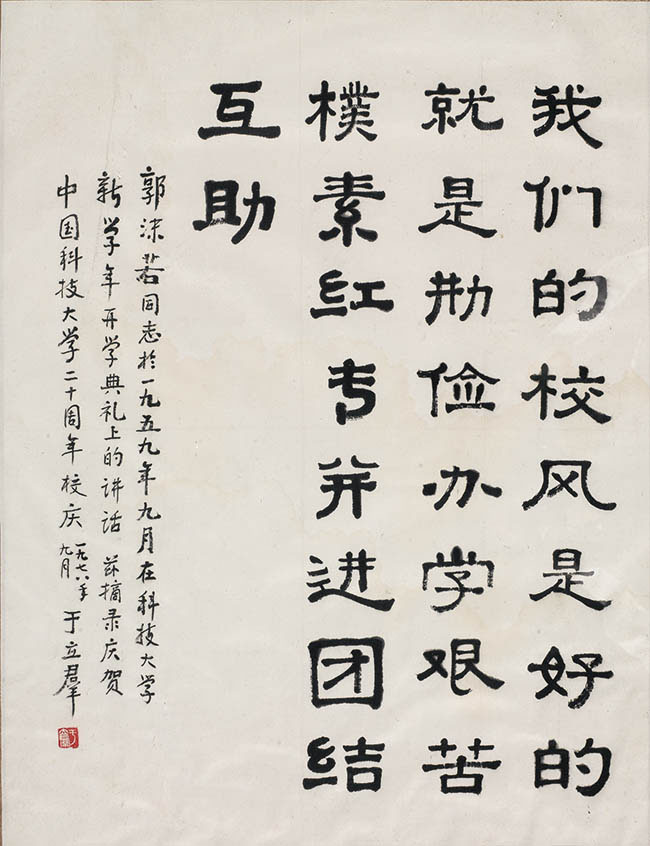 我们的校风是好的
就是勤俭办学艰苦
樸素红专并进团结
互助
郭沫若同志於一九五九年九月在科技大学
新学年开学典礼上的讲话 兹摘录庆贺
中国科技大学二十周年校庆 一九七八年九月 于立群